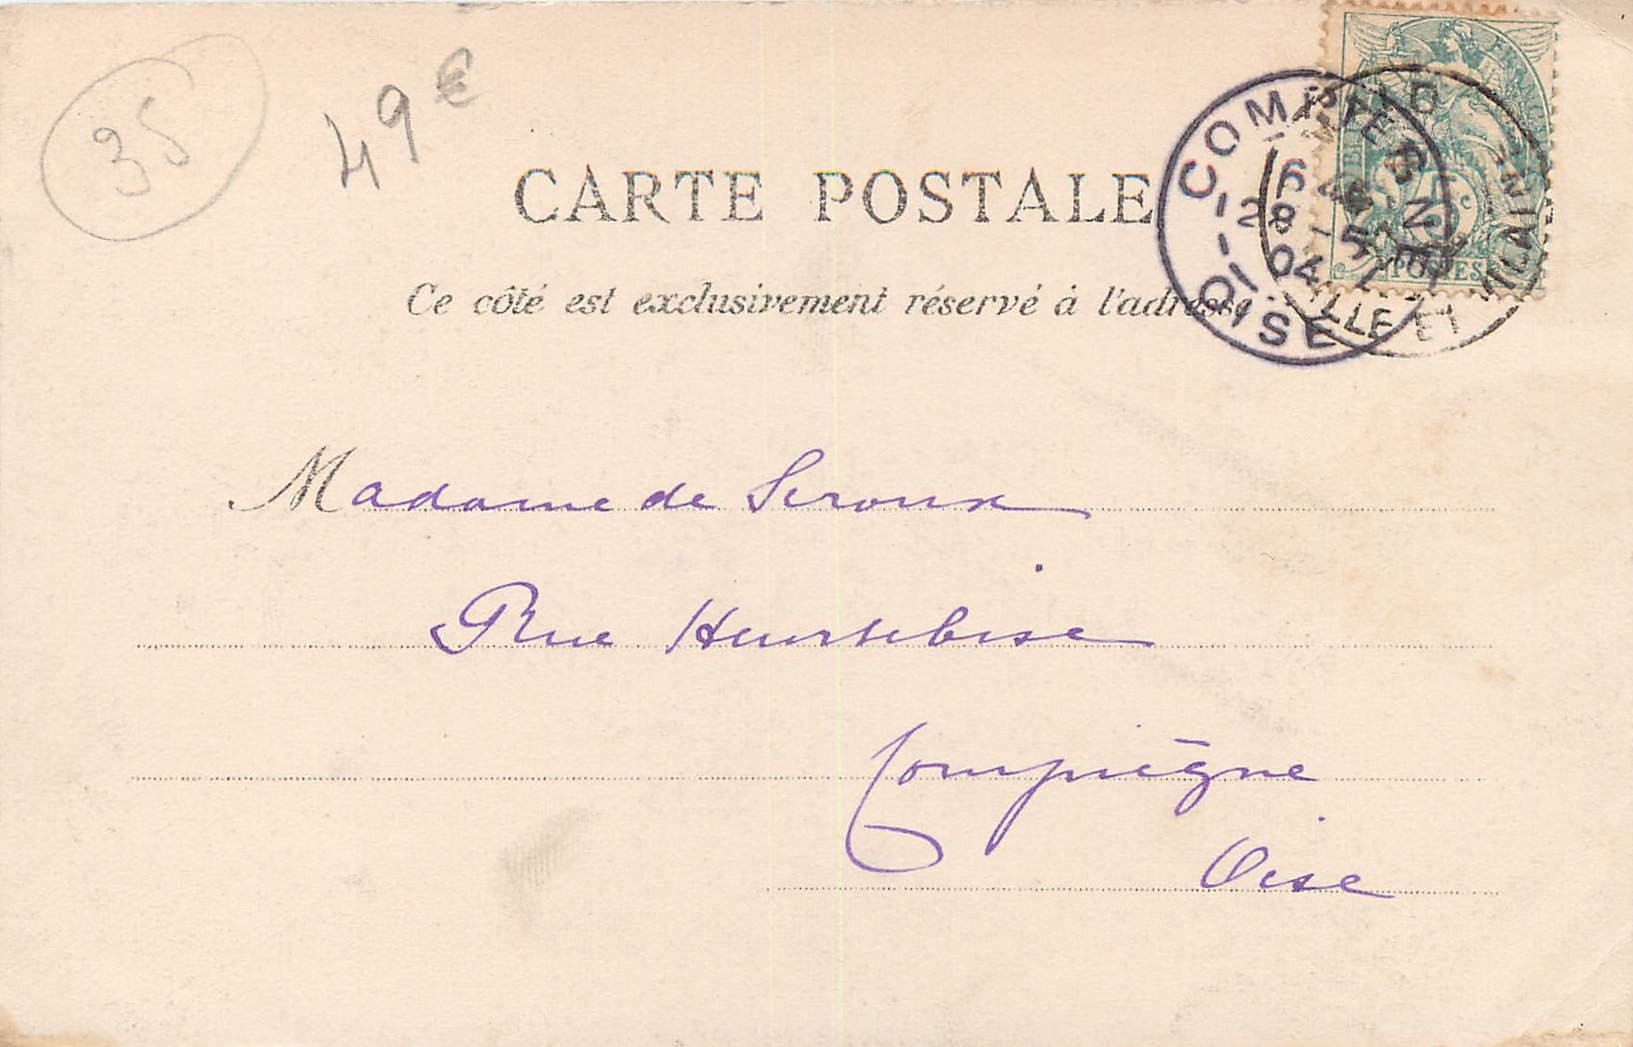 35
49 €
CARTE POSTALE
Ce côté est exclusivement réservé à l'adresse
COMPIEGNE
6
28 - 5
04
OISE
ILLE ET VILAINE
POSTES
Madame de Seroux
Rue Heurtebise
Compiègne
Oise